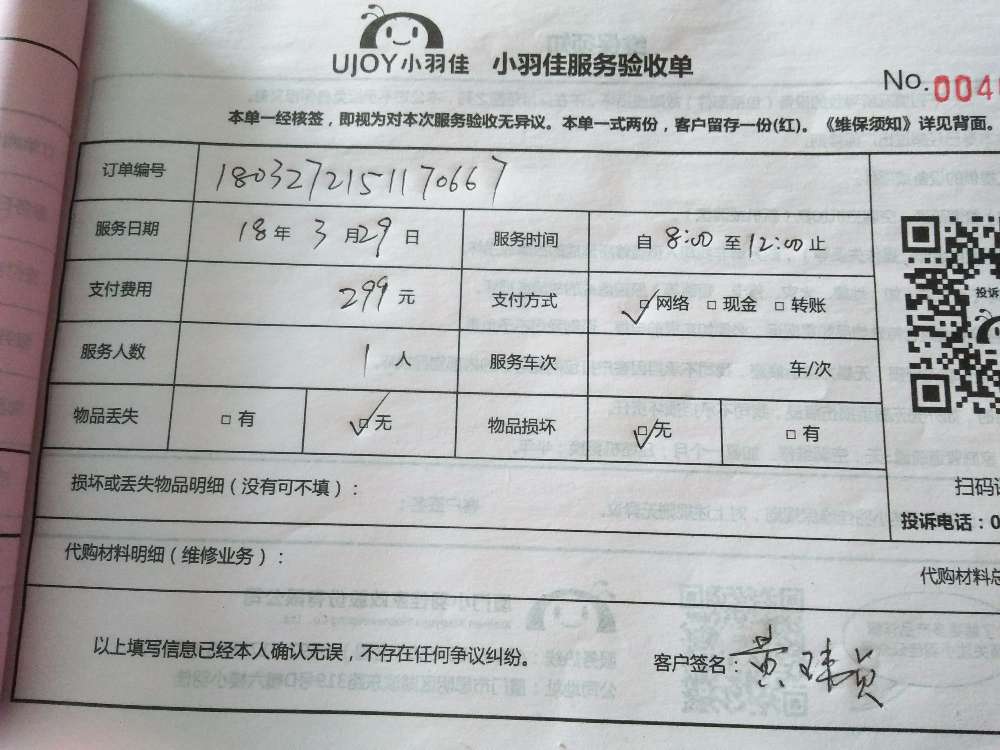 UJOY小羽佳 小羽佳服务验收单
No. 004
本单一经核签，即视为对本次服务验收无异议。本单一式两份，客户留存一份(红)。《维保须知》详见背面。
订单编号 1803272151170667
服务日期 18年 3月29日 服务时间 自 8:00 至 12:00 止
支付费用 299元 支付方式 ☑网络 □现金 □转账
服务人数 1人 服务车次 车/次
物品丢失 □有 ☑无 物品损坏 ☑无 □有
投诉
损坏或丢失物品明细（没有可不填）：
扫码
投诉电话：0
代购材料明细（维修业务）：
代购材料总
以上填写信息已经本人确认无误，不存在任何争议纠纷。
客户签名：黄